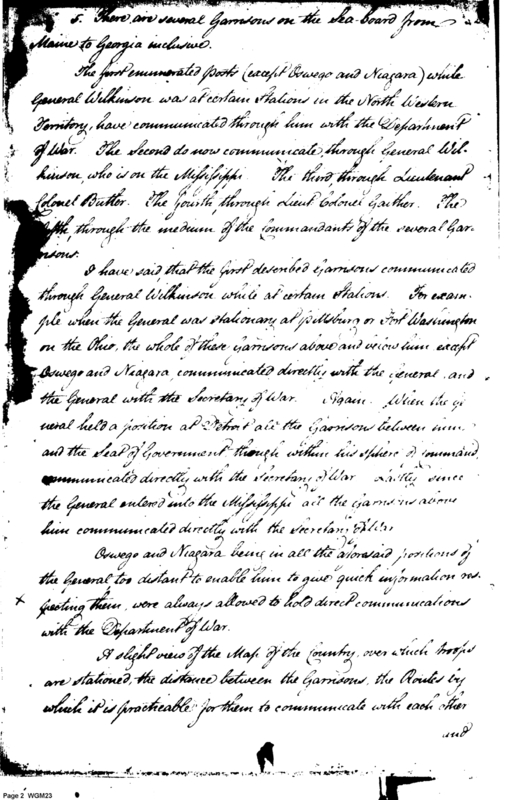 5. There are several Garrisons on the Sea-board from
Maine to Georgia inclusive.
The first enumerated posts (except Oswego and Niagara) while
General Wilkinson was at certain Stations in the North Western
Territory, have communicated through him with the Department
of War. The Second do now communicate, through General Wil-
kinson, who is on the Mississippi. The third through Lieutenant
Colonel Butler. The fourth, through Lieut Colonel Gaither. The
fifth, through the medium of the Commandants of the several Gar-
risons.
I have said that the first described Garrisons communicated
through General Wilkinson while at certain Stations. For exam-
ple when the General was stationary at pittsburg or Fort Washington
on the Ohio, the whole of these Garrisons above and below him except
Oswego and Niagara communicated directly with the General, and
the General with the Secretary of War. Again. When the Ge
neral held a position at Detroit all the Garrisons between him
and the Seat of Government though within his sphere of command,
communicated directly with the Secretary of War. Lastly since
the General entered into the Mississippi all the Garrisons above
him communicated directly with the Secretary of War
Oswego and Niagara being in all the aforesaid positions of
the General too distant to enable him to give quick information res-
x pecting them, were always allowed to hold direct communications
with the Department of War.
A slight view of the Map of the Country, over which troops
are stationed, the distance between the Garrisons, the Routes by
which it is practicable for them to communicate with each other
and
Page 2 WGM23